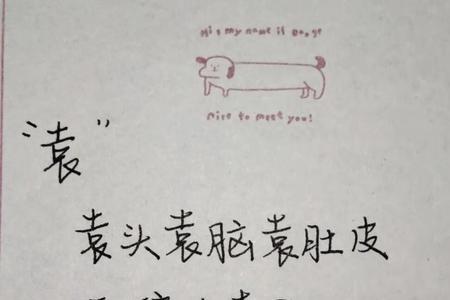 Hi, my name is Doggy
nice to meet you!
“袁”
袁头袁脑袁肚皮